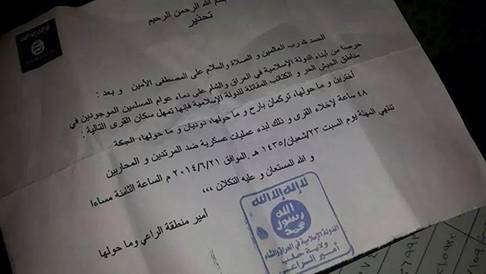 بسم الله الرحمن الرحيم
تحذير
الحمد لله رب العالمين و الصلاة والسلام على المصطفى الأمين و بعد :
حرصا من أبناء الدولة الإسلامية في العراق والشام على دماء عوام المسلمين الموجودين في
مناطق الجيش الحر و الكتائب المقاتلة للدولة الإسلامية فإنها تمهل سكان القرى التالية :
أخترين و ما حولها، تركمان بارح و ما حولها، دوديان و ما حولها، الجكة
٤٨ ساعة لإخلاء القرى و ذلك لبدء عمليات عسكرية ضد المرتدين و المحاربين
تنتهي المهلة يوم السبت ٢٣/شعبان/١٤٣٥ هـ الموافق ٢٠١٤/٦/٢١ م الساعة الثامنة مساءا
و الله المستعان و عليه التكلان ،،،
أمير منطقة الراعي وما حولها
لا إله إلا الله
الله
رسول
محمد
الدولة الإسلامية في العراق والشام
ولاية حلب